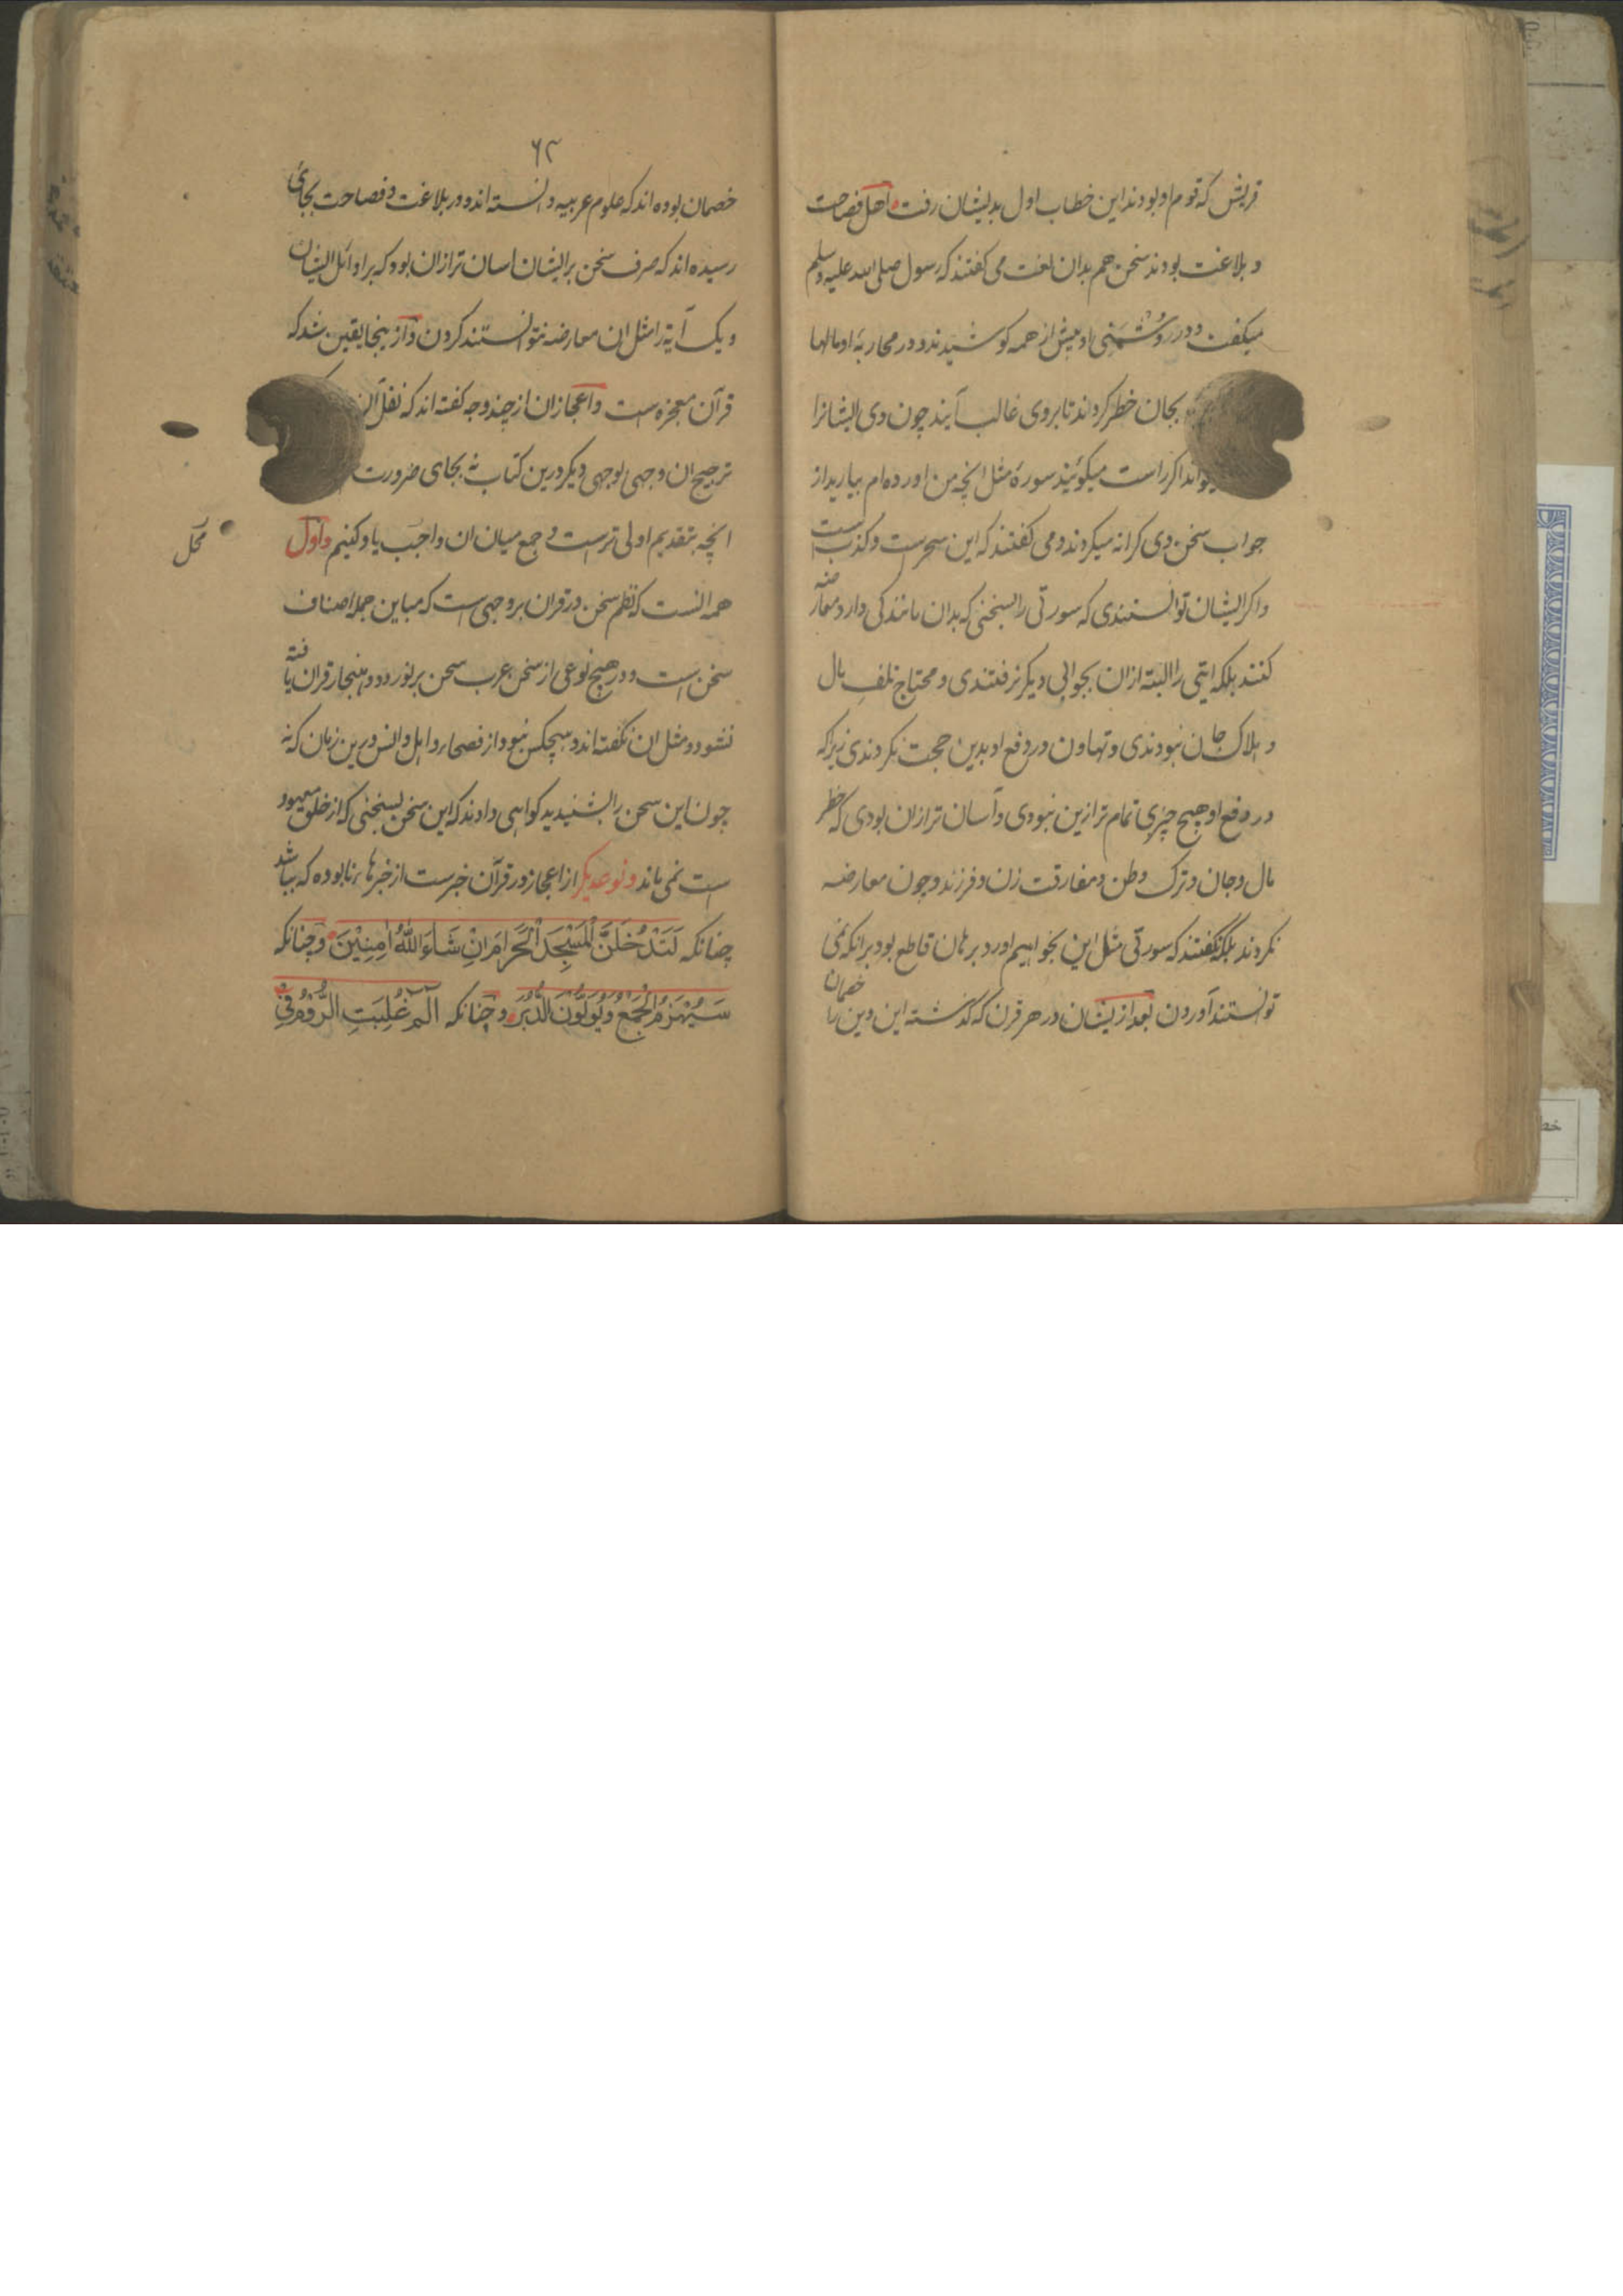 قریش که قوم او بودند این خطاب اول بدیشان رفت اهل فصاحت
و بلاغت بودند سخن هم بدان لغت می کفتند که رسول صلی الله علیه وسلم
میکفت و در دشمنی او بیش از همه کوشیدند و در محاربهٔ او مالها
بجان خطر کردند تا بروی غالب آیند چون وی ایشانرا
اکر راست میکوئید سورهٔ مثل انچه من اورده ام بیارید از
جواب سخن وی کرانه میکردند و می کفتند که این سحرست و کذب است
و اکر ایشان توانستندی که سورتی را بسخنی که بدان مانندکی دارد معارضه
کنند بلکه ایتی را البته ازان بجوابی دیکر نرفتندی و محتاج تلف مال
و هلاک جان نبودندی و تهاون در دفع او بدین حجت نکردندی زیرا که
در دفع او هیچ چیزی تمام تر ازین نبودی و آسان تر ازان بودی که خطر
مال و جان و ترک وطن و مفارقت زن و فرزند و چون معارضه
نکردند بلکه نکفتند که سورتی مثل این بخواهیم اورد برهان قاطع بود برانکه نمی
توانستند آوردن بعد ازیشان در هر قرن که کذشته این دین را خصمان
۶۳
خصمان بوده اند که علوم عربیه دانسته اند و در بلاغت و فصاحت بجائی
رسیده اند که صرف سخن برایشان اسان تر ازان بود که بر اوائل ایشان
و یک آیة را مثل ان معارضه نتوانستند کردن و ازینجا یقین شد که
قرآن معجزه است و اعجاز ان از چند وجه کفته اند که نقل آن
ترجیح ان وجهی بوجهی دیکر درین کتاب نه بجای ضرورت
انچه بتقدیم اولی ترست و جمع میان ان واجب یاد کنیم و اول
محل
همه انست که نظم سخن در قران بر وجهی است که مباین جمله اصناف
سخن است و در هیچ نوعی از سخن عرب سخن بر نورد و هنجار قران یافته
نشود و مثل ان نکفته اند و هیچکس نبود از فصحاء و اهل دانش درین زبان که نه
چون این سخن را بشنیدید کواهی دادند که این سخن بسخنی که از خلق معهود
است نمی ماند و نوعدیکر از اعجاز در قرآن خبرست از خبرهاء نابوده که بباشد
چنانکه لَتَدْخُلَنَّ الْمَسْجِدَ الْحَرَامَ اِنْ شَاءَ اللّٰهُ اٰمِنِیْنَ و چنانکه
سَیُهْزَمُ الْجَمْعُ وَیُوَلُّوْنَ الدُّبُرَ و چنانکه الم غُلِبَتِ الرُّوْمُ فِیْ